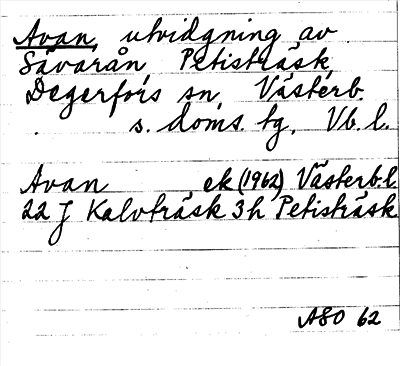 Avan, utvidgning av
Sävarån, Petisträsk,
Degerfors sn, Västerb.
s. doms. tg, Vb. l.
Avan, ek (1962) Västerb. l
22 J Kalvträsk 3h Petisträsk
ASO 62